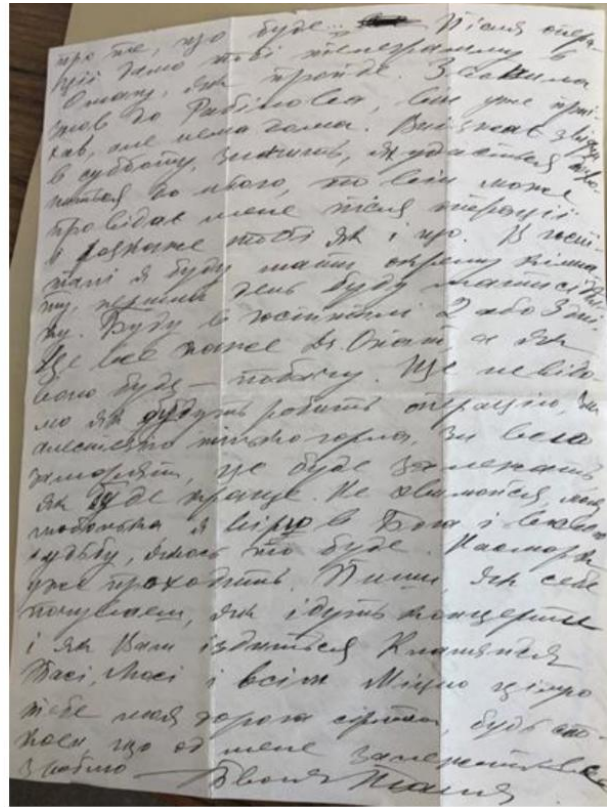 про те, що буде... Після опер
ції дамо тобі телеграму в
Отаву, як пройде. З
до вже при
хав, але нема дома. Виїзжає
в субботу, значить, як удасться
до нього, то він може
провідає мене після операції
і роскаже тобі як і що. В госпі
талі я буду мати окрему кімна
ту, перший день буду мати
ку. Буду в госпіталі 2 або 3 дні
Це все каже Др. а як
воно буде — побачу. Ще не відо
мо як будуть робить операцію, чи
тільки горла, чи всю
це буде залежать
як буде краще. Не моя
любонька я вірю в Бога і в свою
судьбу, якось то буде. Насморк
уже проходить. Пиши, як себе
почуваєш, як ідуть концерти
і як Вам їздиться Кланяйся
Тасі, Люсі і всім Міцно цілую
тебе моя дорога будь спо-
койн, що од мене залежить все
зроблю Твоя Таня